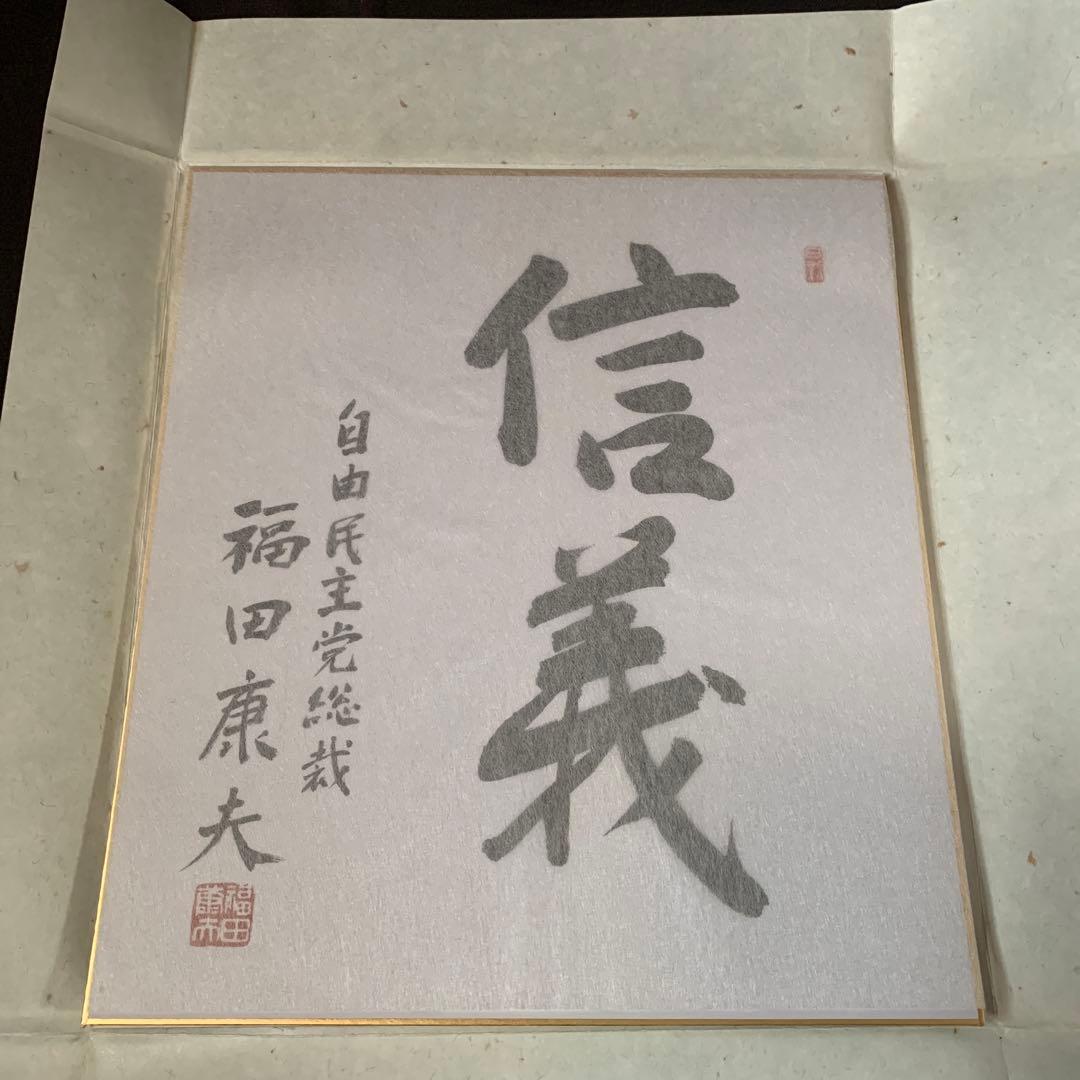 信義
自由民主党総裁
福田康夫
福田
康夫